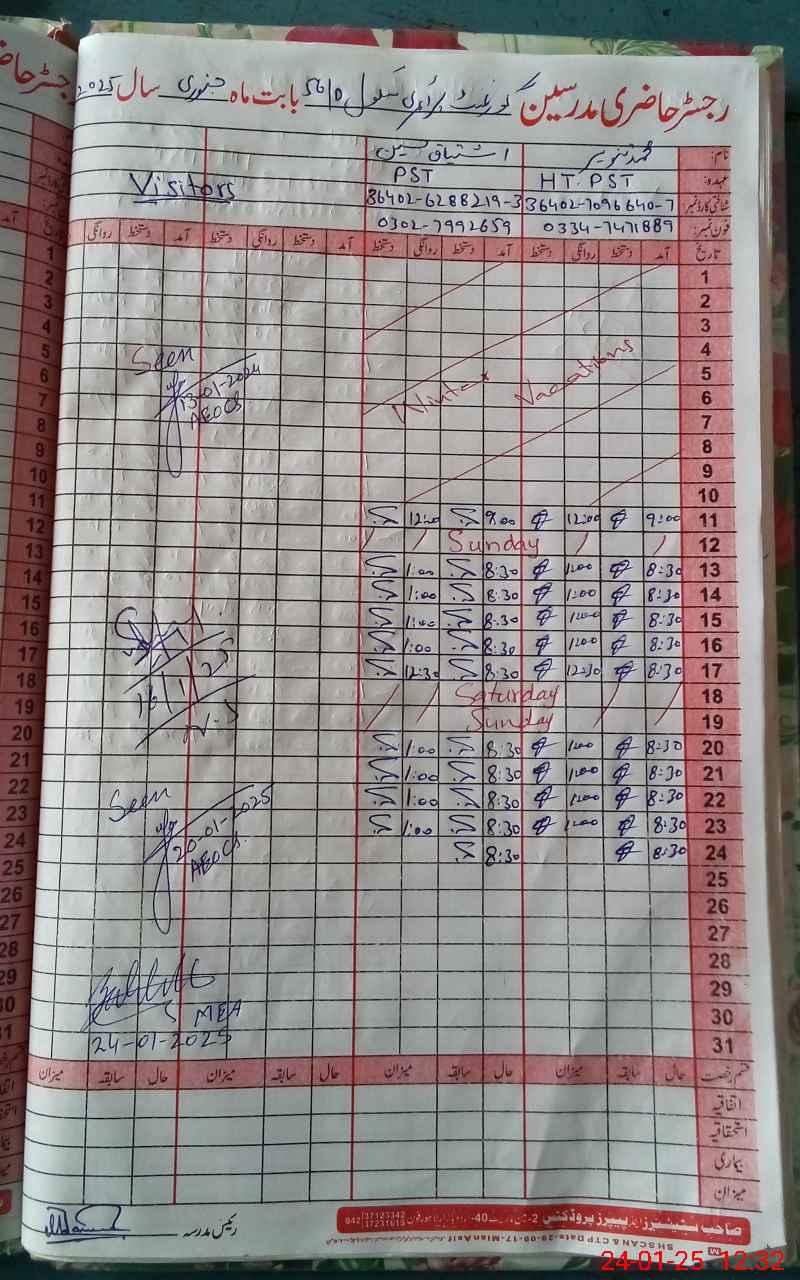 رجسٹر حاضری مدرسین گورنمنٹ پرائمری سکول 56/D بابت ماہ جنوری سال 2025
نام: محمد تنویر اشتیاق حسین
عہدہ: HT. PST PST Visitors
شناختی کارڈ نمبر 36402-7096640-7 36402-6288219-3
فون نمبر: 0334-7471889 0302-7992659
تاریخ آمد دستخط روانگی دستخط آمد دستخط روانگی دستخط آمد دستخط روانگی دستخط آمد دستخط روانگی
1
2
3
4
5
6
7
8
9
10
Winter Vacations
11 9:00 12:00 9:00 12:00
12 Sunday
13 8:30 1:00 8:30 1:00
14 8:30 1:00 8:30 1:00
15 8:30 1:00 8:30 1:00
16 8:30 1:00 8:30 1:00
17 8:30 12:30 8:30 12:30
18 Saturday
19 Sunday
20 8:30 1:00 8:30 1:00
21 8:30 1:00 8:30 1:00
22 8:30 1:00 8:30 1:00
23 8:30 1:00 8:30 1:00
24 8:30 8:30
25
26
27
28
29
30
31
Seen
13-01-2024
AEOCS
16/1/25
Seen
20-01-2025
AEOCS
MEA
24-01-2025
قسم رخصت حال سابقہ میزان حال سابقہ میزان حال سابقہ میزان حال سابقہ میزان
اتفاقیہ
استحقاقیہ
بیماری
میزان
رئیس مدرسہ
042 37123342
37231615
24-01-25 12:32